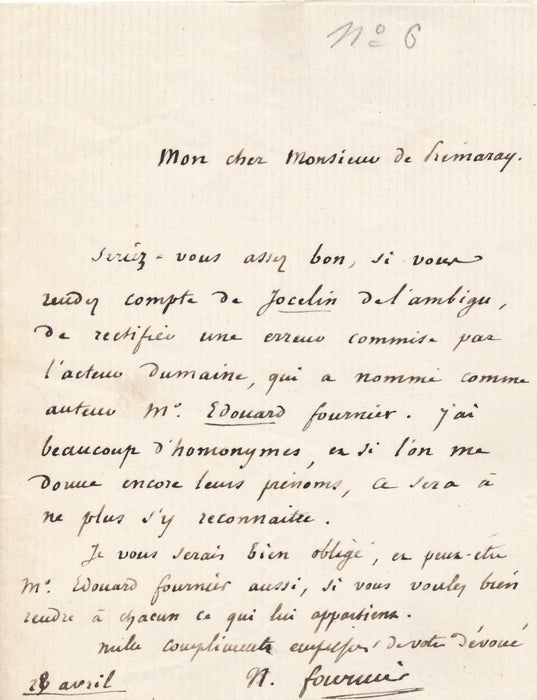 N° 6
Mon cher Monsieur de Prémaray.
Seriez-vous assez bon, si vous
rendez compte de Jocelin de l'ambigu,
de rectifier une erreur commise par
l'acteur Dumaine, qui a nommé comme
auteur Mr. Edouard fournier. j'ai
beaucoup d'homonymes, et si l'on me
donne encore leurs prénoms, ce sera à
ne plus s'y reconnaitre.
Je vous serais bien obligé, et peut-être
Mr. Edouard fournier aussi, si vous voulez bien
rendre à chacun ce qui lui appartient.
mille compliments empressés de votre dévoué
N. fournier
avril